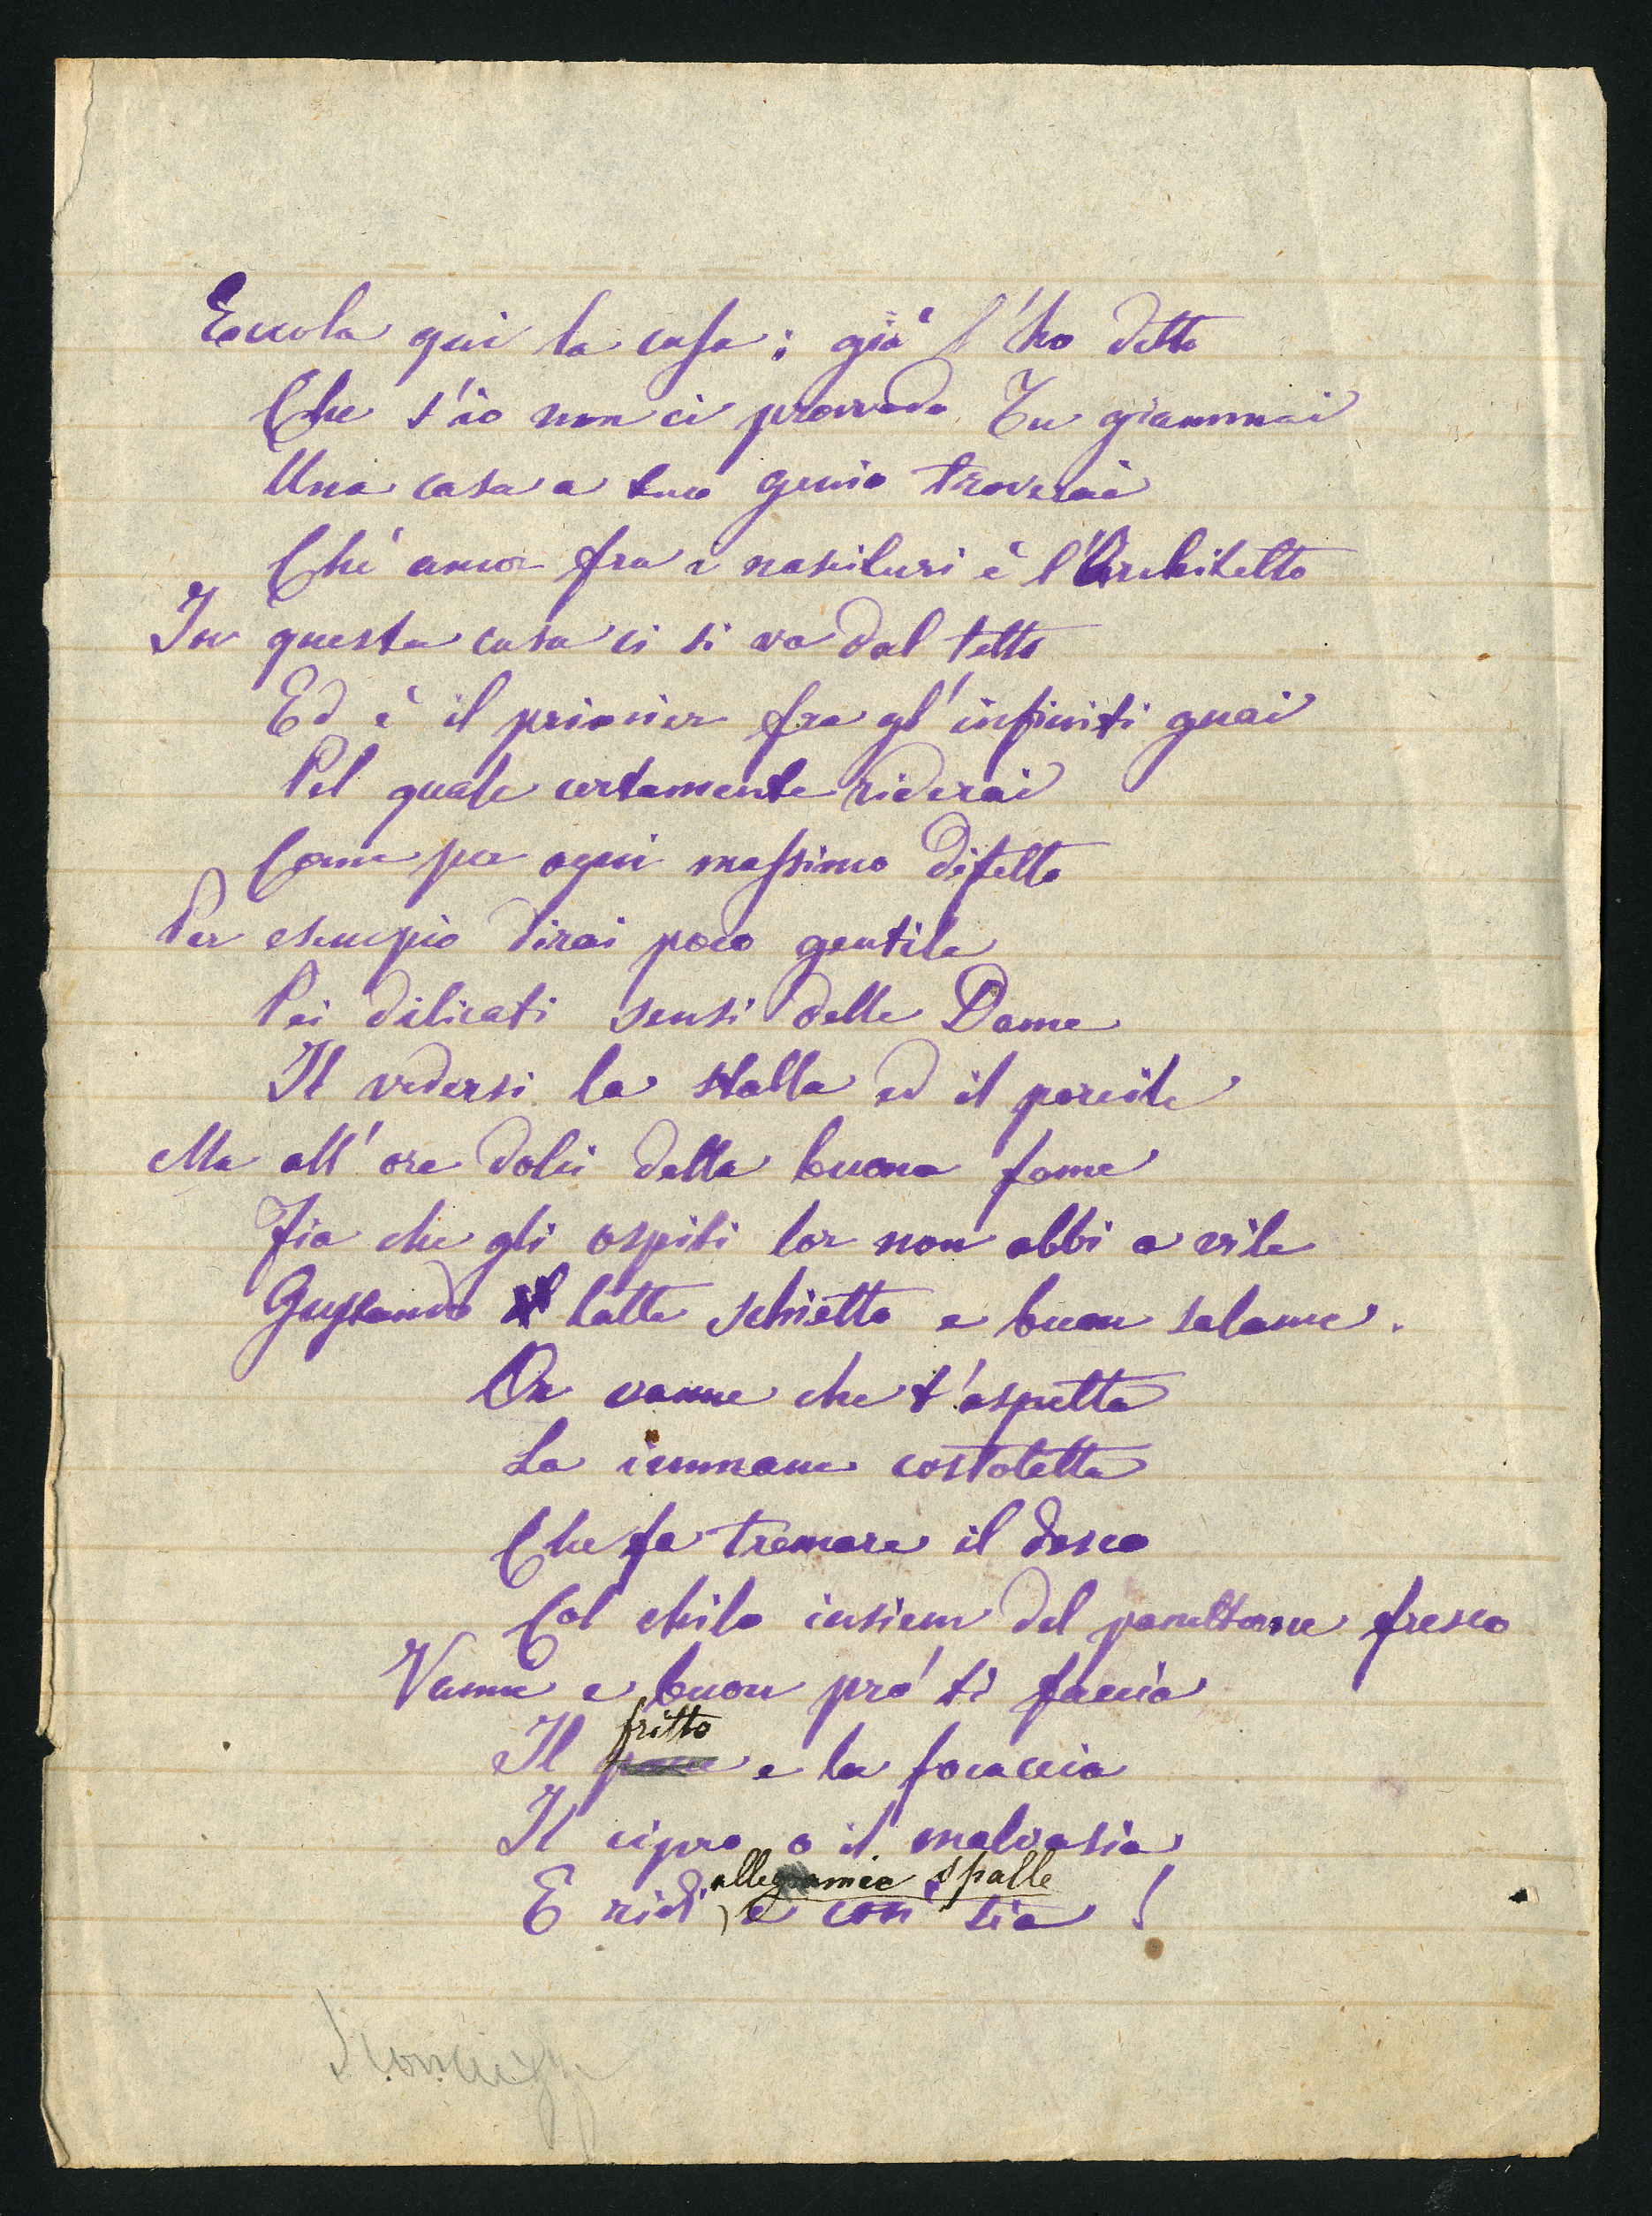 Eccola qui la casa; già l'ho detto
Che s'io non ci provvedo Tu giammai
Una casa a tuo genio troverai
Chè ancor fra i nascituri è l'Architetto
In questa casa ci si va dal tetto
Ed è il primier fra gl'infiniti guai
Pel quale certamente riderai
Come per ogni massimo difetto
Per esempio dirai poco gentile
Pei dilicati sensi delle Dame
Il vedersi la stalla ed il porcile
Ma all'ore dolci della buona fame
Fia che gli ospiti lor non abbi a vile
Gustando il latte schietto e buon salame.
Or vanne che t'aspetta
La immane costoletta
Che fa tremare il desco
Col chilo insiem del panettone fresco
Vanne e buon pro' ti faccia
fritto
Il e la focaccia
Il cipro o il malvasia
alle mie spalle
E ridi, e così sia!